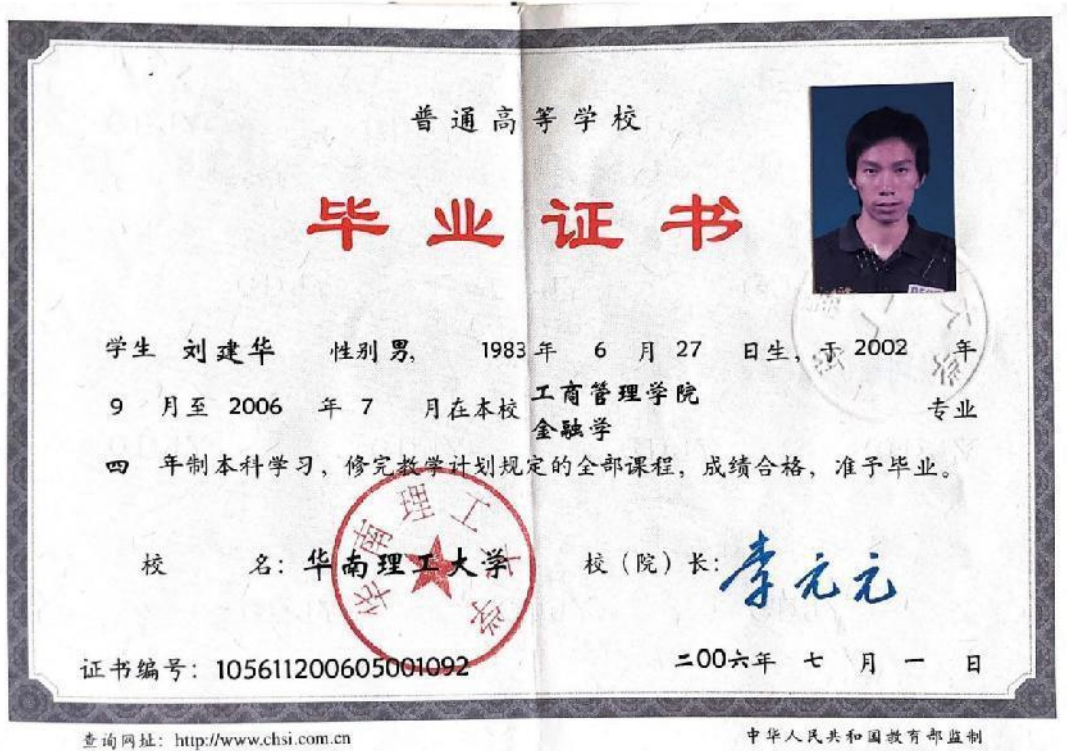 普通高等学校
毕业证书
学生 刘建华 性别 男, 1983 年 6 月 27 日生, 于 2002 年
9 月至 2006 年 7 月在本校 工商管理学院 金融学 专业
四 年制本科学习, 修完教学计划规定的全部课程, 成绩合格, 准予毕业。
校 名: 华南理工大学 校(院)长: 李元元
华南理工大学
证书编号: 105611200605001092 二00六年 七 月 一 日
查询网址: http://www.chsi.com.cn 中华人民共和国教育部监制